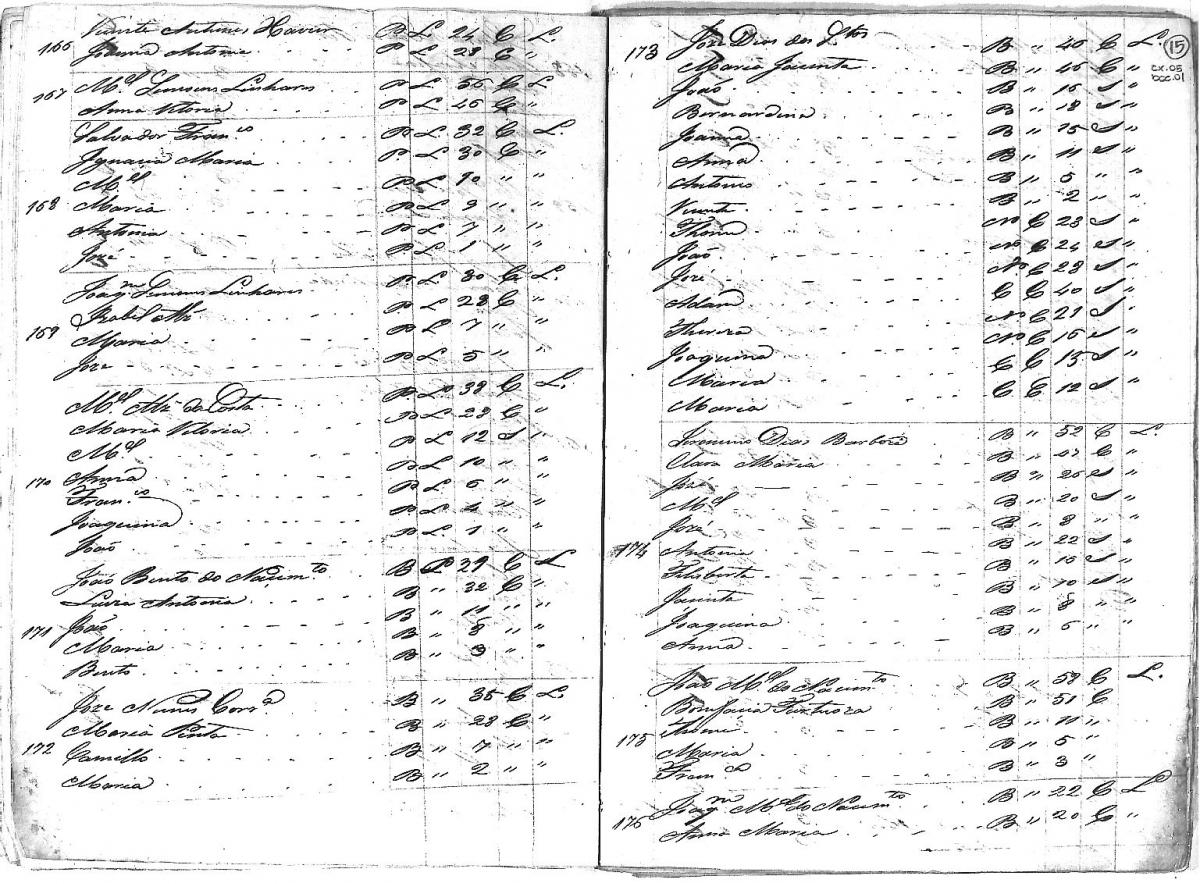 166 Vicente Antunes Xavier B L 24 C L.
Joanna Antonia P L 23 C "
167 M.el Simoens Linhares P L 56 C L
Anna Vitoria P L 46 C "
Salvador Fran.co P L 32 C L.
Ignacia Maria P L 30 C "
M.el P L 10 " "
168 Maria P L 9 " "
Antonia P L 7 " "
José P L 1 " "
Joaq.m Simoens Linhares P L 30 C L.
Izabel Mª P L 28 C "
169 Maria P L 7 " "
José P L 5 " "
M.el Mª da Costa P L 38 C L.
Maria Vitoria P L 28 C "
M.el P L 12 S "
170 Anna P L 10 " "
Fran.co P L 6 " "
Joaquina P L 4 " "
João P L 1 " "
João Bento do Nascim.to B L 39 C L
Luzia Antonia B " 32 C "
171 João B " 11 " "
Maria B " 8 " "
Bento B " 3 " "
Joze Nunes Corr.a B " 35 C L
Maria Pinta B " 28 C "
172 Camillo B " 7 " "
Maria B " 2 " "
15
cx.05
Doc.01
173 José Dias dos S.tos B " 40 C L.
Maria Jacinta B " 46 C "
João B " 16 S "
Bernardina B " 18 S "
Joanna B " 15 S "
Anna B " 11 S "
Antonio B " 5 " "
Vicente B " 2 " "
Thomé N C 23 S "
João N C 24 S "
José N C 28 S "
Adam C C 40 S "
Thereza N C 21 S "
Joaquina N C 16 S "
Maria C C 13 S "
Maria C C 12 S "
Jeronimo Dias Barboza B " 52 C L.
Clara Maria B " 47 C "
José B " 26 S "
M.el B " 20 S "
José B " 8 " "
174 Antonia B " 22 S "
Felisberta B " 16 S "
Jacinta B " 10 S "
Joaquina B " 8 " "
Anna B " 6 " "
João M.el do Nascim.to B " 58 C L.
Bonifacia Furtuoza B " 51 C
175 Thomé B " 11 "
Maria B " 5 "
Fran.ca B " 3 "
Joaq.m M.el do Nascim.to B " 22 C L
176 Anna Maria B " 20 C "